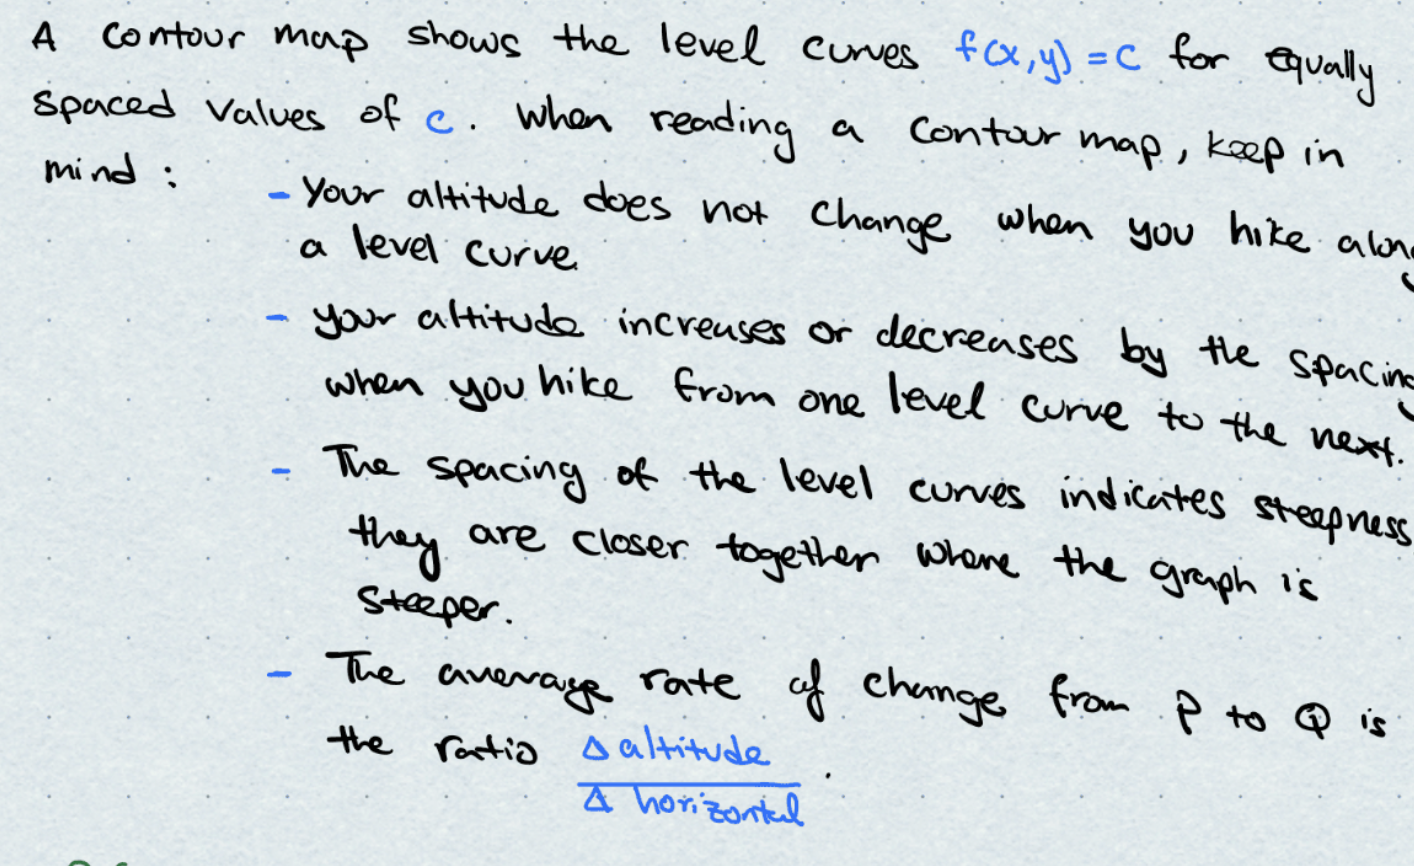 A contour map shows the level curves f(x,y) = C for equally
spaced values of c. When reading a contour map, keep in
mind :
- Your altitude does not change when you hike along
a level curve
- your altitude increases or decreases by the spacing
when you hike from one level curve to the next.
- The spacing of the level curves indicates steepness
they are closer together where the graph is
steeper.
- The average rate of change from P to Q is
the ratio Δ altitude / Δ horizontal .